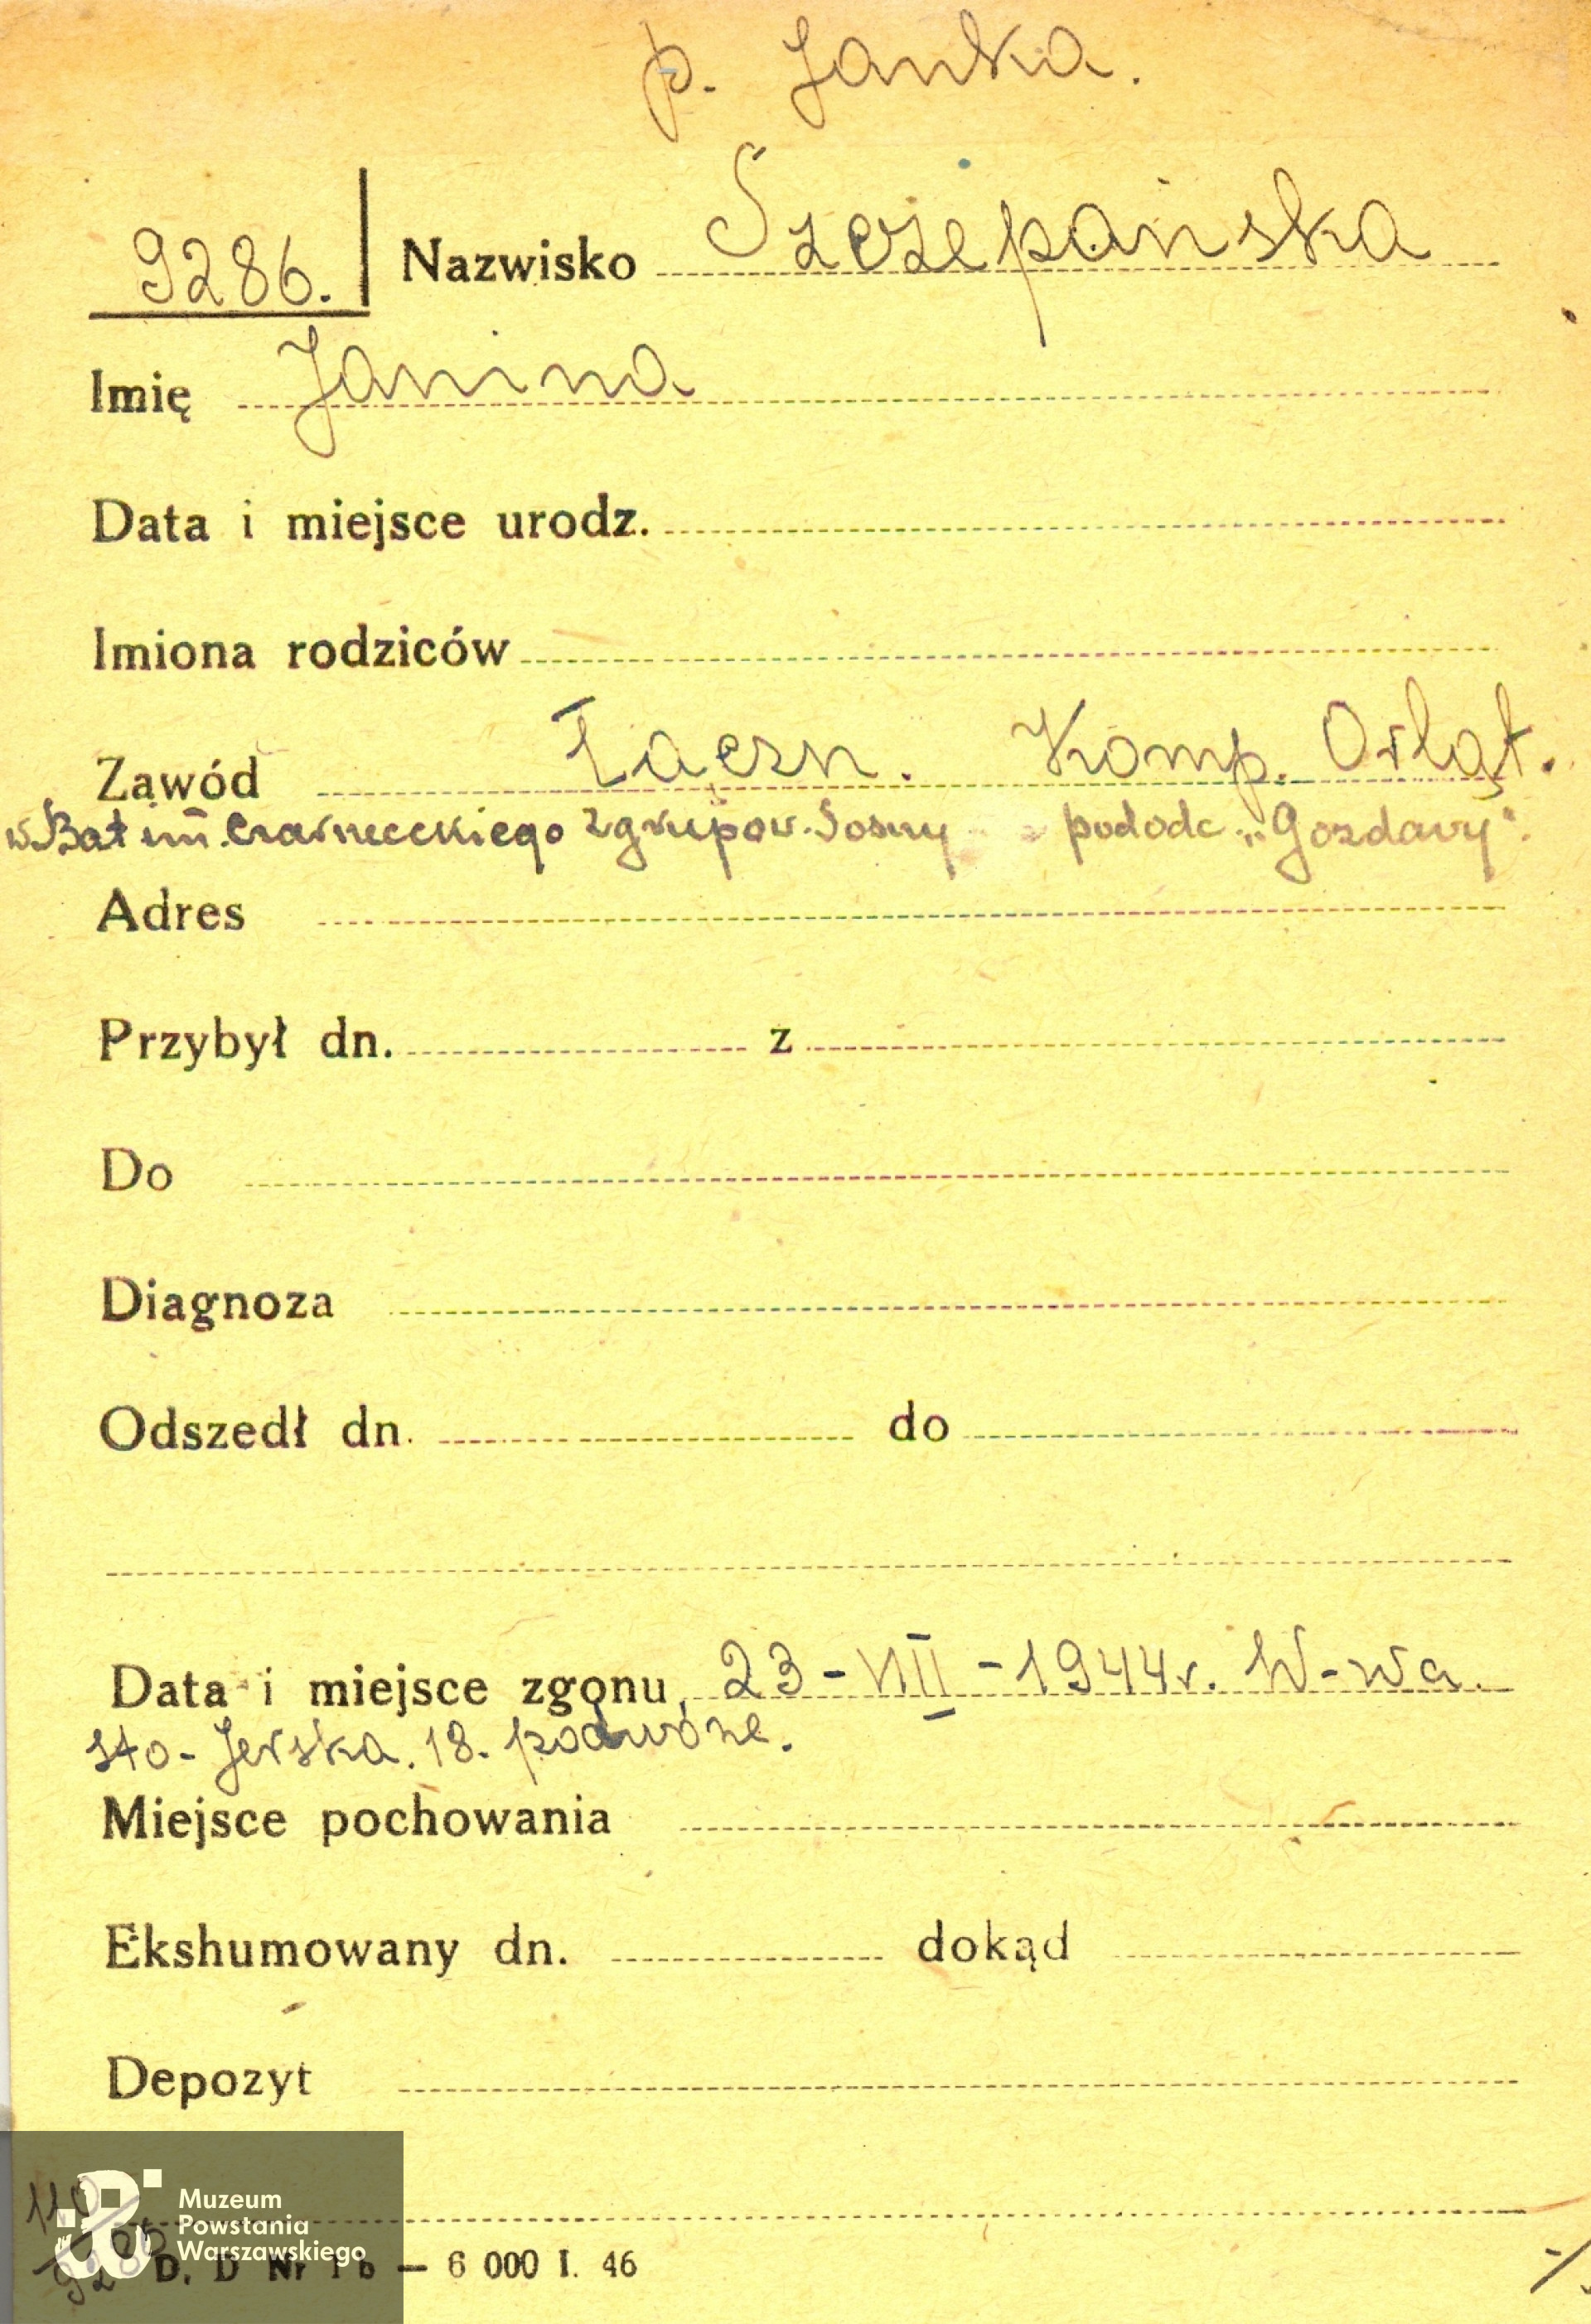 p. Janka.
9286. Nazwisko Szczepańska
Imię Janina
Data i miejsce urodz.
Imiona rodziców
Zawód Łączn. Komp. Orląt.
w Bat im. Czarneckiego zgrupow. Sosny pododc. „Gozdawy".
Adres
Przybył dn. z
Do
Diagnoza
Odszedł dn. do
Data i miejsce zgonu, 23-VIII-1944r. W-wa.
Sto-Jerska. 18. podwórze.
Miejsce pochowania
Ekshumowany dn. dokąd
Depozyt
110
Muzeum
Powstania
Warszawskiego
D. D Nr 1 b — 6 000 I. 46